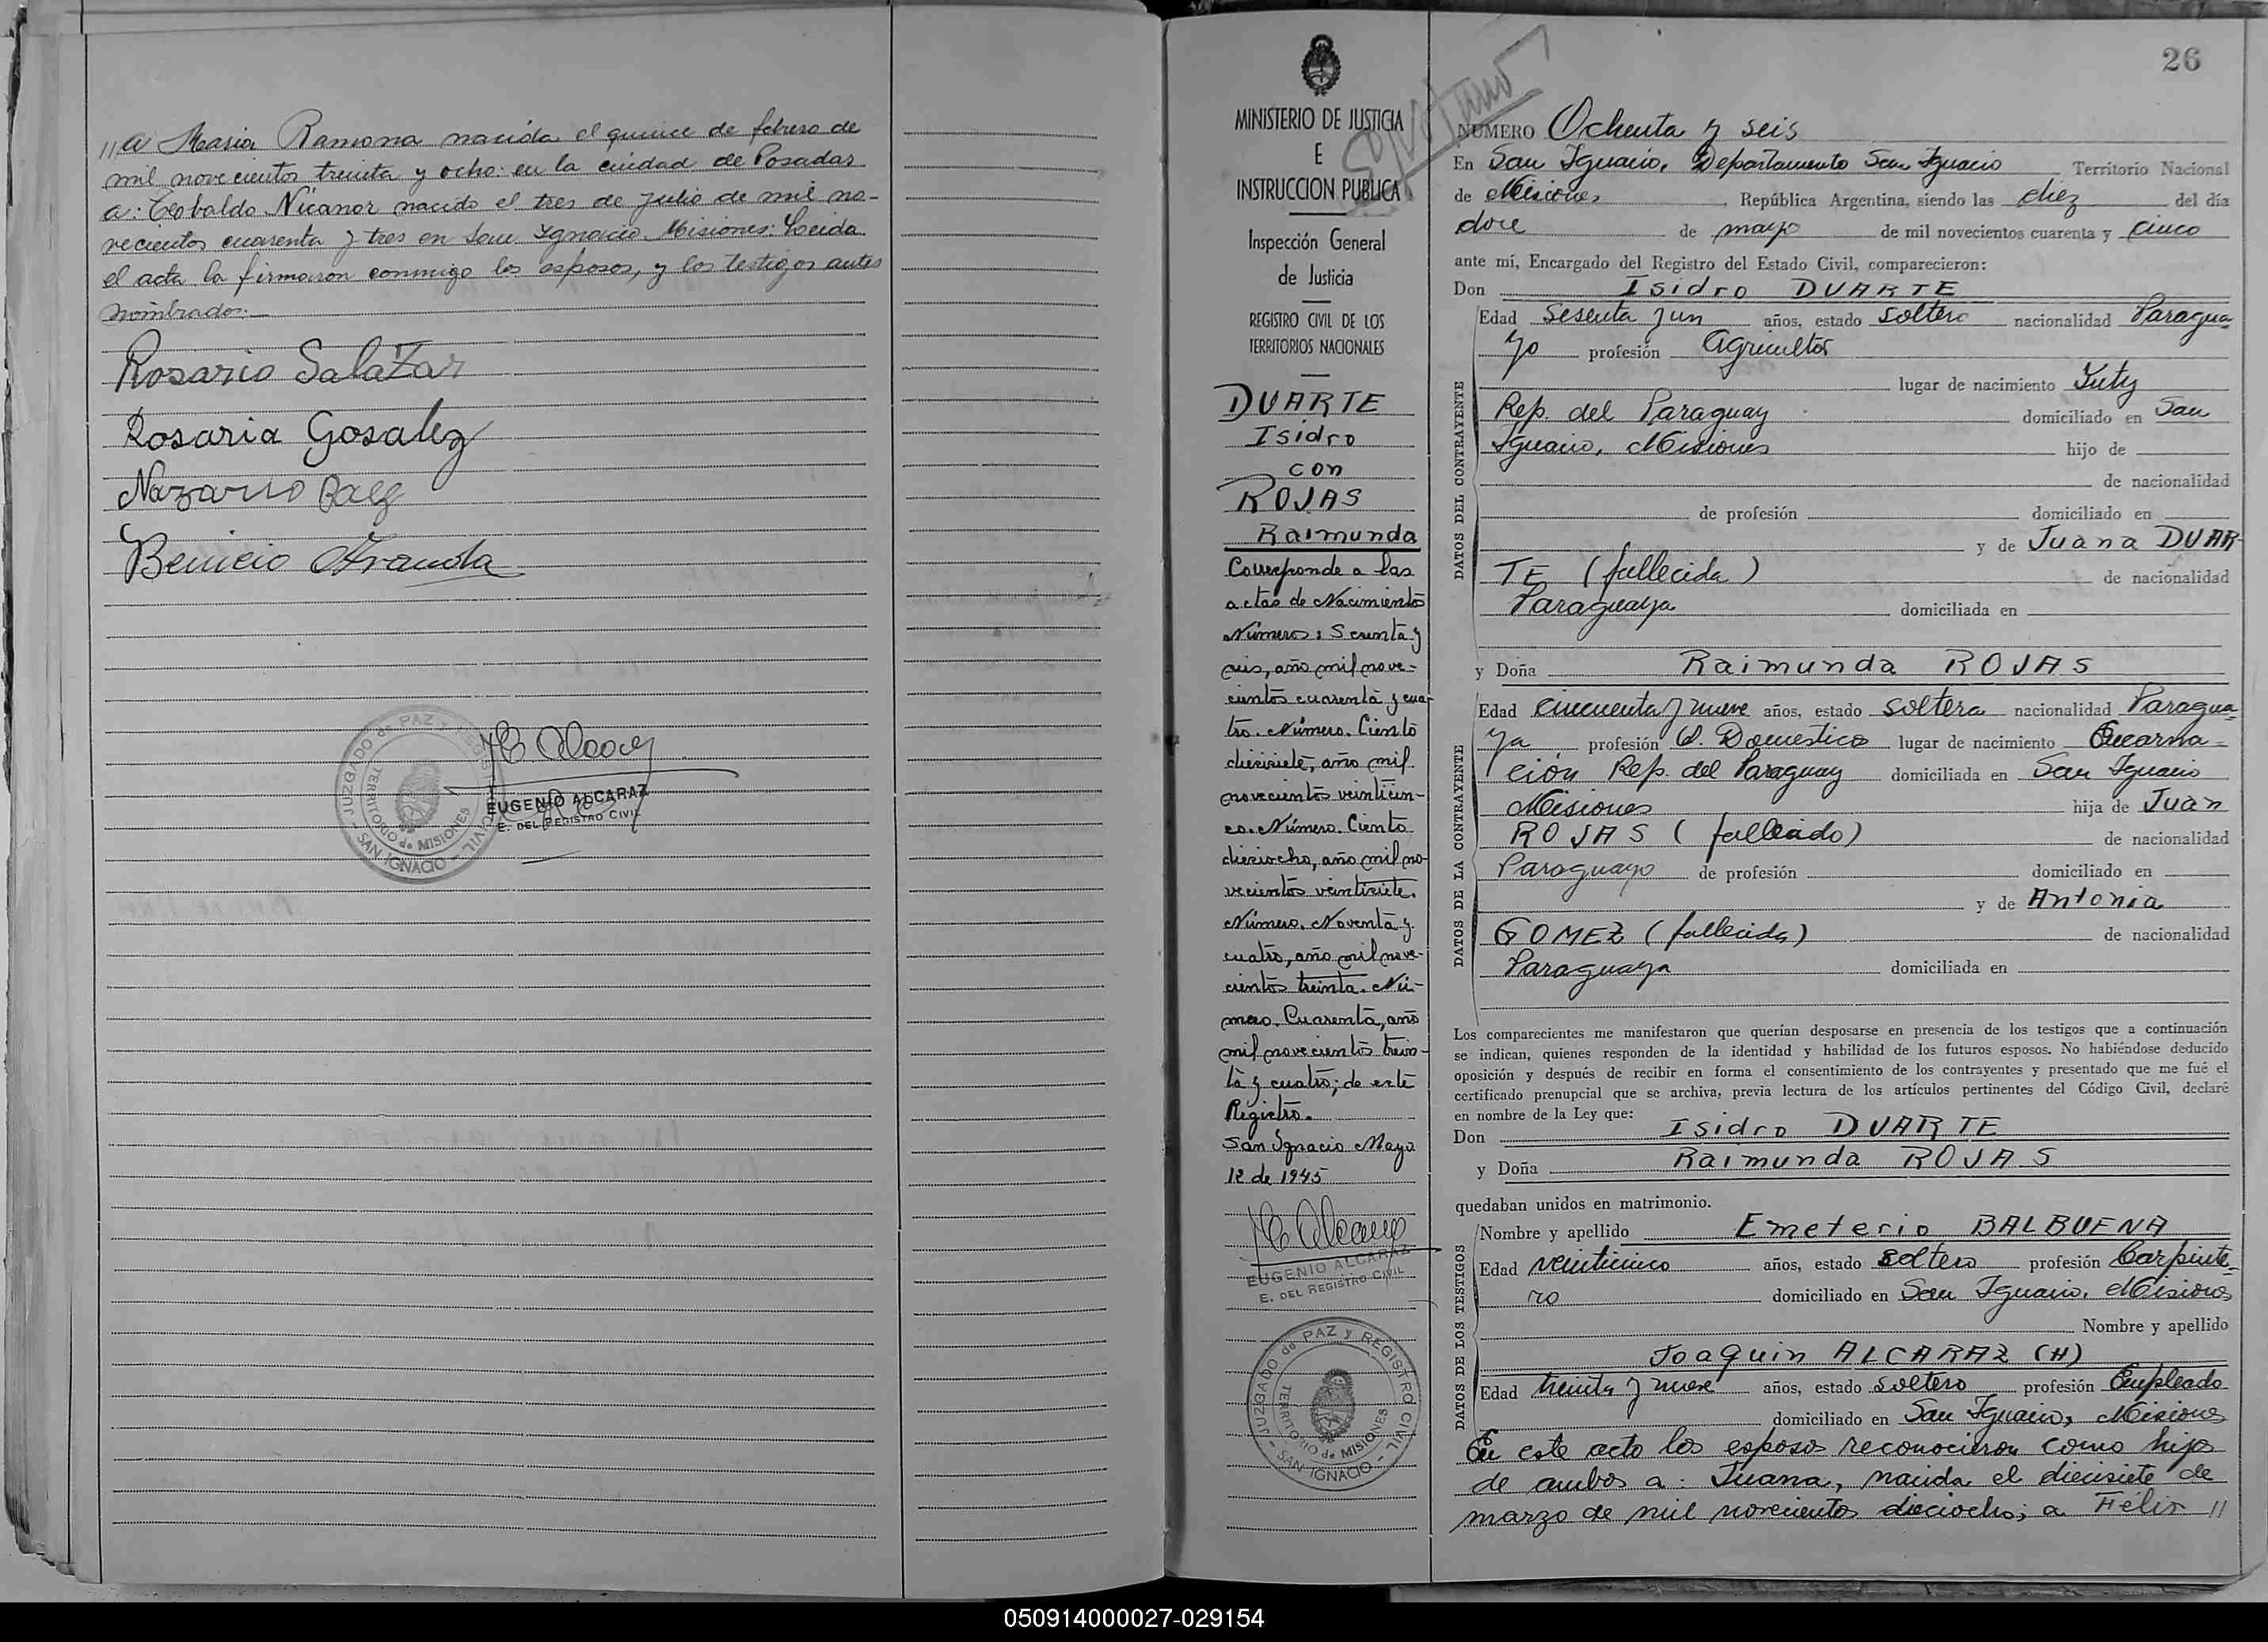 //a Maria Ramona nacida el quince de febrero de
mil novecientos treinta y ocho: en la ciudad de Posadas
a: Teobaldo Nicanor nacido el tres de julio de mil no-
vecientos cuarenta y tres en San Ignacio Misiones: Leida
el acta la firmaron conmigo los esposos, y los testigos antes
nombrados.
Rosario SalaZar
Rosaria Gosalez
Nazario Paez
Benicio
JUZGADO de PAZ y REGISTRO CIVIL - SAN IGNACIO -
TERRITORIO de MISIONES
EUGENIO ALCARAZ
E. DEL REGISTRO CIVIL
MINISTERIO DE JUSTICIA
E
INSTRUCCION PUBLICA
Inspección General
de Justicia
REGISTRO CIVIL DE LOS
TERRITORIOS NACIONALES
DUARTE
Isidro
con
ROJAS
Raimunda
Corresponde a las
actas de Nacimientos
Números: Sesenta y
seis, año mil nove-
cientos cuarenta y cua-
tro. Número. Ciento
diecisiete, año mil
novecientos veinticin-
co. Número. Ciento
dieciocho, año mil no-
vecientos veintisiete.
Número. Noventa y
cuatro, año mil nove-
cientos treinta. Nú-
mero. Cuarenta, año
mil novecientos trein-
ta y cuatro; de este
Registro.
San Ignacio Mayo
12 de 1945
EUGENIO ALCARAZ
E. DEL REGISTRO CIVIL
JUZGADO de PAZ y REGISTRO CIVIL - SAN IGNACIO -
TERRITORIO de MISIONES
26
NUMERO Ochenta y seis
En San Ignacio, Departamento San Ignacio Territorio Nacional
de Misiones, República Argentina, siendo las diez del día
doce de mayo de mil novecientos cuarenta y cinco
ante mí, Encargado del Registro del Estado Civil, comparecieron:
Don Isidro DUARTE
Edad Sesenta y un años, estado soltero nacionalidad Paragua
yo profesión Agricultor
lugar de nacimiento Yuty
Rep. del Paraguay domiciliado en San
Ignacio, Misiones hijo de
de nacionalidad
de profesión domiciliado en
y de Juana DUAR-
TE (fallecida) de nacionalidad
Paraguaya domiciliada en
y Doña Raimunda ROJAS
Edad Cincuenta y nueve años, estado soltera nacionalidad Paragua-
ya profesión Q. Domesticos lugar de nacimiento Encarna=
ción Rep. del Paraguay domiciliada en San Ignacio
Misiones hija de Juan
ROJAS (fallecido) de nacionalidad
Paraguayo de profesión domiciliado en
y de Antonia
GOMEZ (fallecida) de nacionalidad
Paraguaya domiciliada en
DATOS DEL CONTRAYENTE
DATOS DE LA CONTRAYENTE
Los comparecientes me manifestaron que querían desposarse en presencia de los testigos que a continuación
se indican, quienes responden de la identidad y habilidad de los futuros esposos. No habiéndose deducido
oposición y después de recibir en forma el consentimiento de los contrayentes y presentado que me fué el
certificado prenupcial que se archiva, previa lectura de los artículos pertinentes del Código Civil, declaré
en nombre de la Ley que:
Don Isidro DUARTE
y Doña Raimunda ROJAS
quedaban unidos en matrimonio.
Nombre y apellido Emeterio BALBUENA
Edad veinticinco años, estado soltero profesión Carpinte=
ro domiciliado en San Ignacio, Misiones
Nombre y apellido
Joaquin ALCARAZ (H)
Edad treinta y nueve años, estado soltero profesión Empleado
domiciliado en San Ignacio, Misiones
DATOS DE LOS TESTIGOS
En este acto los esposos reconocieron como hijos
de ambos a: Juana, nacida el diecisiete de
marzo de mil novecientos dieciocho; a Félix //
050914000027-029154